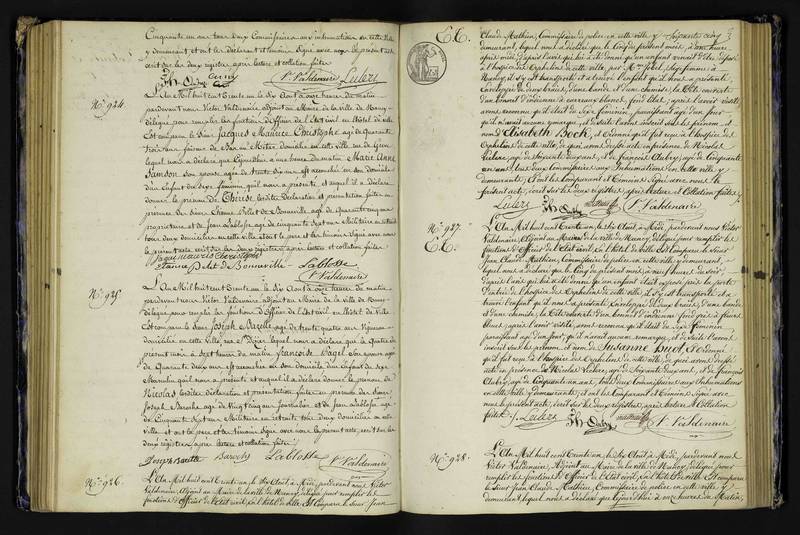 Cinquante un ans tous deux Commissaires aux inhumations en cette ville
y demeurant et ont les déclarant et témoins signé avec nous le présent acte
écrit sur les deux registres après lecture et collation faite
Vr. Valdenaire Lulerz
No. 924.
L'An Mil huit cent Trente un le Six Août à onze heures du matin
pardevant nous Victor Valdenaire adjoint au Maire de la ville de Nancy
délégué pour remplir les fonctions d'officier de l'Etat civil en l'hôtel de ville
Est comparu le Sieur Jacques Maurice Christophe agé de Quarante
trois ans faiseur de Bas au Métier domicilié en cette ville
lequel nous a déclaré que à une heure du matin Marie Anne
Samson son épouse agée de trente six ans est accouchée en son domicile
d'un Enfant du sexe féminin qu'il nous a présenté et auquel il a déclaré
donner le prénom de Thérèse lesdites Déclaration et présentation faites en
présence de Sieur Pelet de Bonneville agé de Quarante cinq ans
propriétaire et de Jean Lablosse agé de cinquante sept ans Militaire en retraite
tous deux domiciliés en cette ville et ont le père et les témoins signé avec nous
le présent acte écrit sur les deux registres après lecture et collation faite
Jacque Maurice Christophe
Pelet de Bonneville Lablosse
Vr. Valdenaire
No. 925.
L'An Mil huit cent Trente un le Six Août à onze heures du matin
pardevant nous Victor Valdenaire adjoint au Maire de la ville de Nancy
délégué pour remplir les fonctions d'officier de l'Etat civil en l'hôtel de Ville
Est comparu le Sieur Joseph Baroche agé de trente quatre ans Vigneron
Domicilié en cette Ville, lequel nous a déclaré que le Quatre du
présent mois à sept heures du matin françoise Pagel son épouse agée
de Quarante deux ans est accouchée en son Domicile d'un Enfant du sexe
Masculin qu'il nous a présenté et auquel il a déclaré donner le prénom de
Nicolas lesdites déclaration et présentation faites en présence des Sieurs
Joseph Baroche agé de Vingt cinq ans journalier et de Jean Lablosse agé
de Cinquante sept ans Militaire en retraite tous deux domiciliés en cette
Ville et ont le père et les témoins signé avec nous le présent acte, écrit sur les
deux registres après lecture et collation faite
Joseph Baroche Baroche Lablosse Vr. Valdenaire
No. 926.
L'An Mil huit cent Trente un le Six Août à Midi, pardevant nous Victor
Valdenaire, Adjoint au Maire de la ville de Nancy, délégué pour remplir les
fonctions d'Officier de l'Etat civil, en l'hôtel de ville Est Comparu le sieur Jean
E.C.
Claude Mathieu, Commissaire de police en cette ville y
demeurant, lequel nous a déclaré que le Cinq du présent mois, à une heure
après midi, d'après l'avis qui lui a été donné qu'un enfant venait d'être déposé
à l'hospice des Orphelins de cette ville,
Nancy, il s'y est transporté et a trouvé l'enfant qu'il nous a présenté
Enveloppé de deux braies, d'une bande et d'une chemise, la tête couverte
d'un bonnet d'indienne à carreaux blancs, fond lilas; après l'avoir visité
avons reconnu qu'il était du sexe féminin, paraissant agé d'un jour
qu'il n'avait aucune remarque, et de suite l'avons inscrit sous les prénom et
nom d'Elisabeth Bock, et ordonné qu'il fut reçu à l'hospice des
Orphelins de cette ville, de quoi avons dressé acte en présence de Nicolas
Lulerz, agé de Soixante deux ans, et de François Claboz, agé de Cinquante
un ans, tous deux Commissaires aux Inhumations en cette ville y
demeurants; et ont les Comparant et témoins, Signé avec nous le
présent acte, écrit sur les deux registres, après Lecture et Collation faites
Lulerz Vr. Valdenaire
No. 927.
E.C.
L'An Mil huit cent Trente un, le Six Août, à Midi, pardevant nous Victor
Valdenaire, Adjoint au Maire de la ville de Nancy, délégué pour remplir les
fonctions d'officier de l'Etat civil, en l'hôtel de ville Est Comparu le Sieur
Jean Claude Mathieu, Commissaire de police en cette ville y demeurant,
lequel nous a déclaré que le Cinq du présent mois, à neuf heures du soir,
d'après l'avis qui lui a été donné qu'un enfant était exposé près la porte
d'Entrée de l'hospice des Orphelins de cette ville, il s'y est transporté et a
trouvé l'enfant qu'il nous a présenté, Enveloppé de deux braies, d'une bande
et d'une chemise, la tête couverte d'un bonnet d'indienne fond gris à fleurs
bleues; après l'avoir visité, avons reconnu qu'il était du sexe féminin
paraissant agé d'un jour, qu'il n'avait aucune remarque, et de suite l'avons
inscrit sous les prénom et nom de Susanne Huot, et ordonné
qu'il fut reçu à l'hospice des Orphelins de cette ville, de quoi avons dressé
acte en présence de Nicolas Lulerz, agé de Soixante deux ans, et de François
Claboz, agé de Cinquante un ans, tous deux Commissaires aux Inhumations
en cette ville y demeurants; et ont les Comparant et témoins Signé avec
nous le présent acte, écrit sur les deux registres, après lecture et Collation
faites. Lulerz Vr. Valdenaire
No. 928.
L'An Mil huit cent Trente un, le Six Août à Midi, pardevant nous
Victor Valdenaire, Adjoint au Maire de la ville de Nancy, délégué pour
remplir les fonctions d'Officier de l'Etat civil, en l'hôtel de ville Est Comparu
le sieur Jean Claude Mathieu, Commissaire de police en cette ville y
demeurant, lequel nous a déclaré que à heures du Matin,